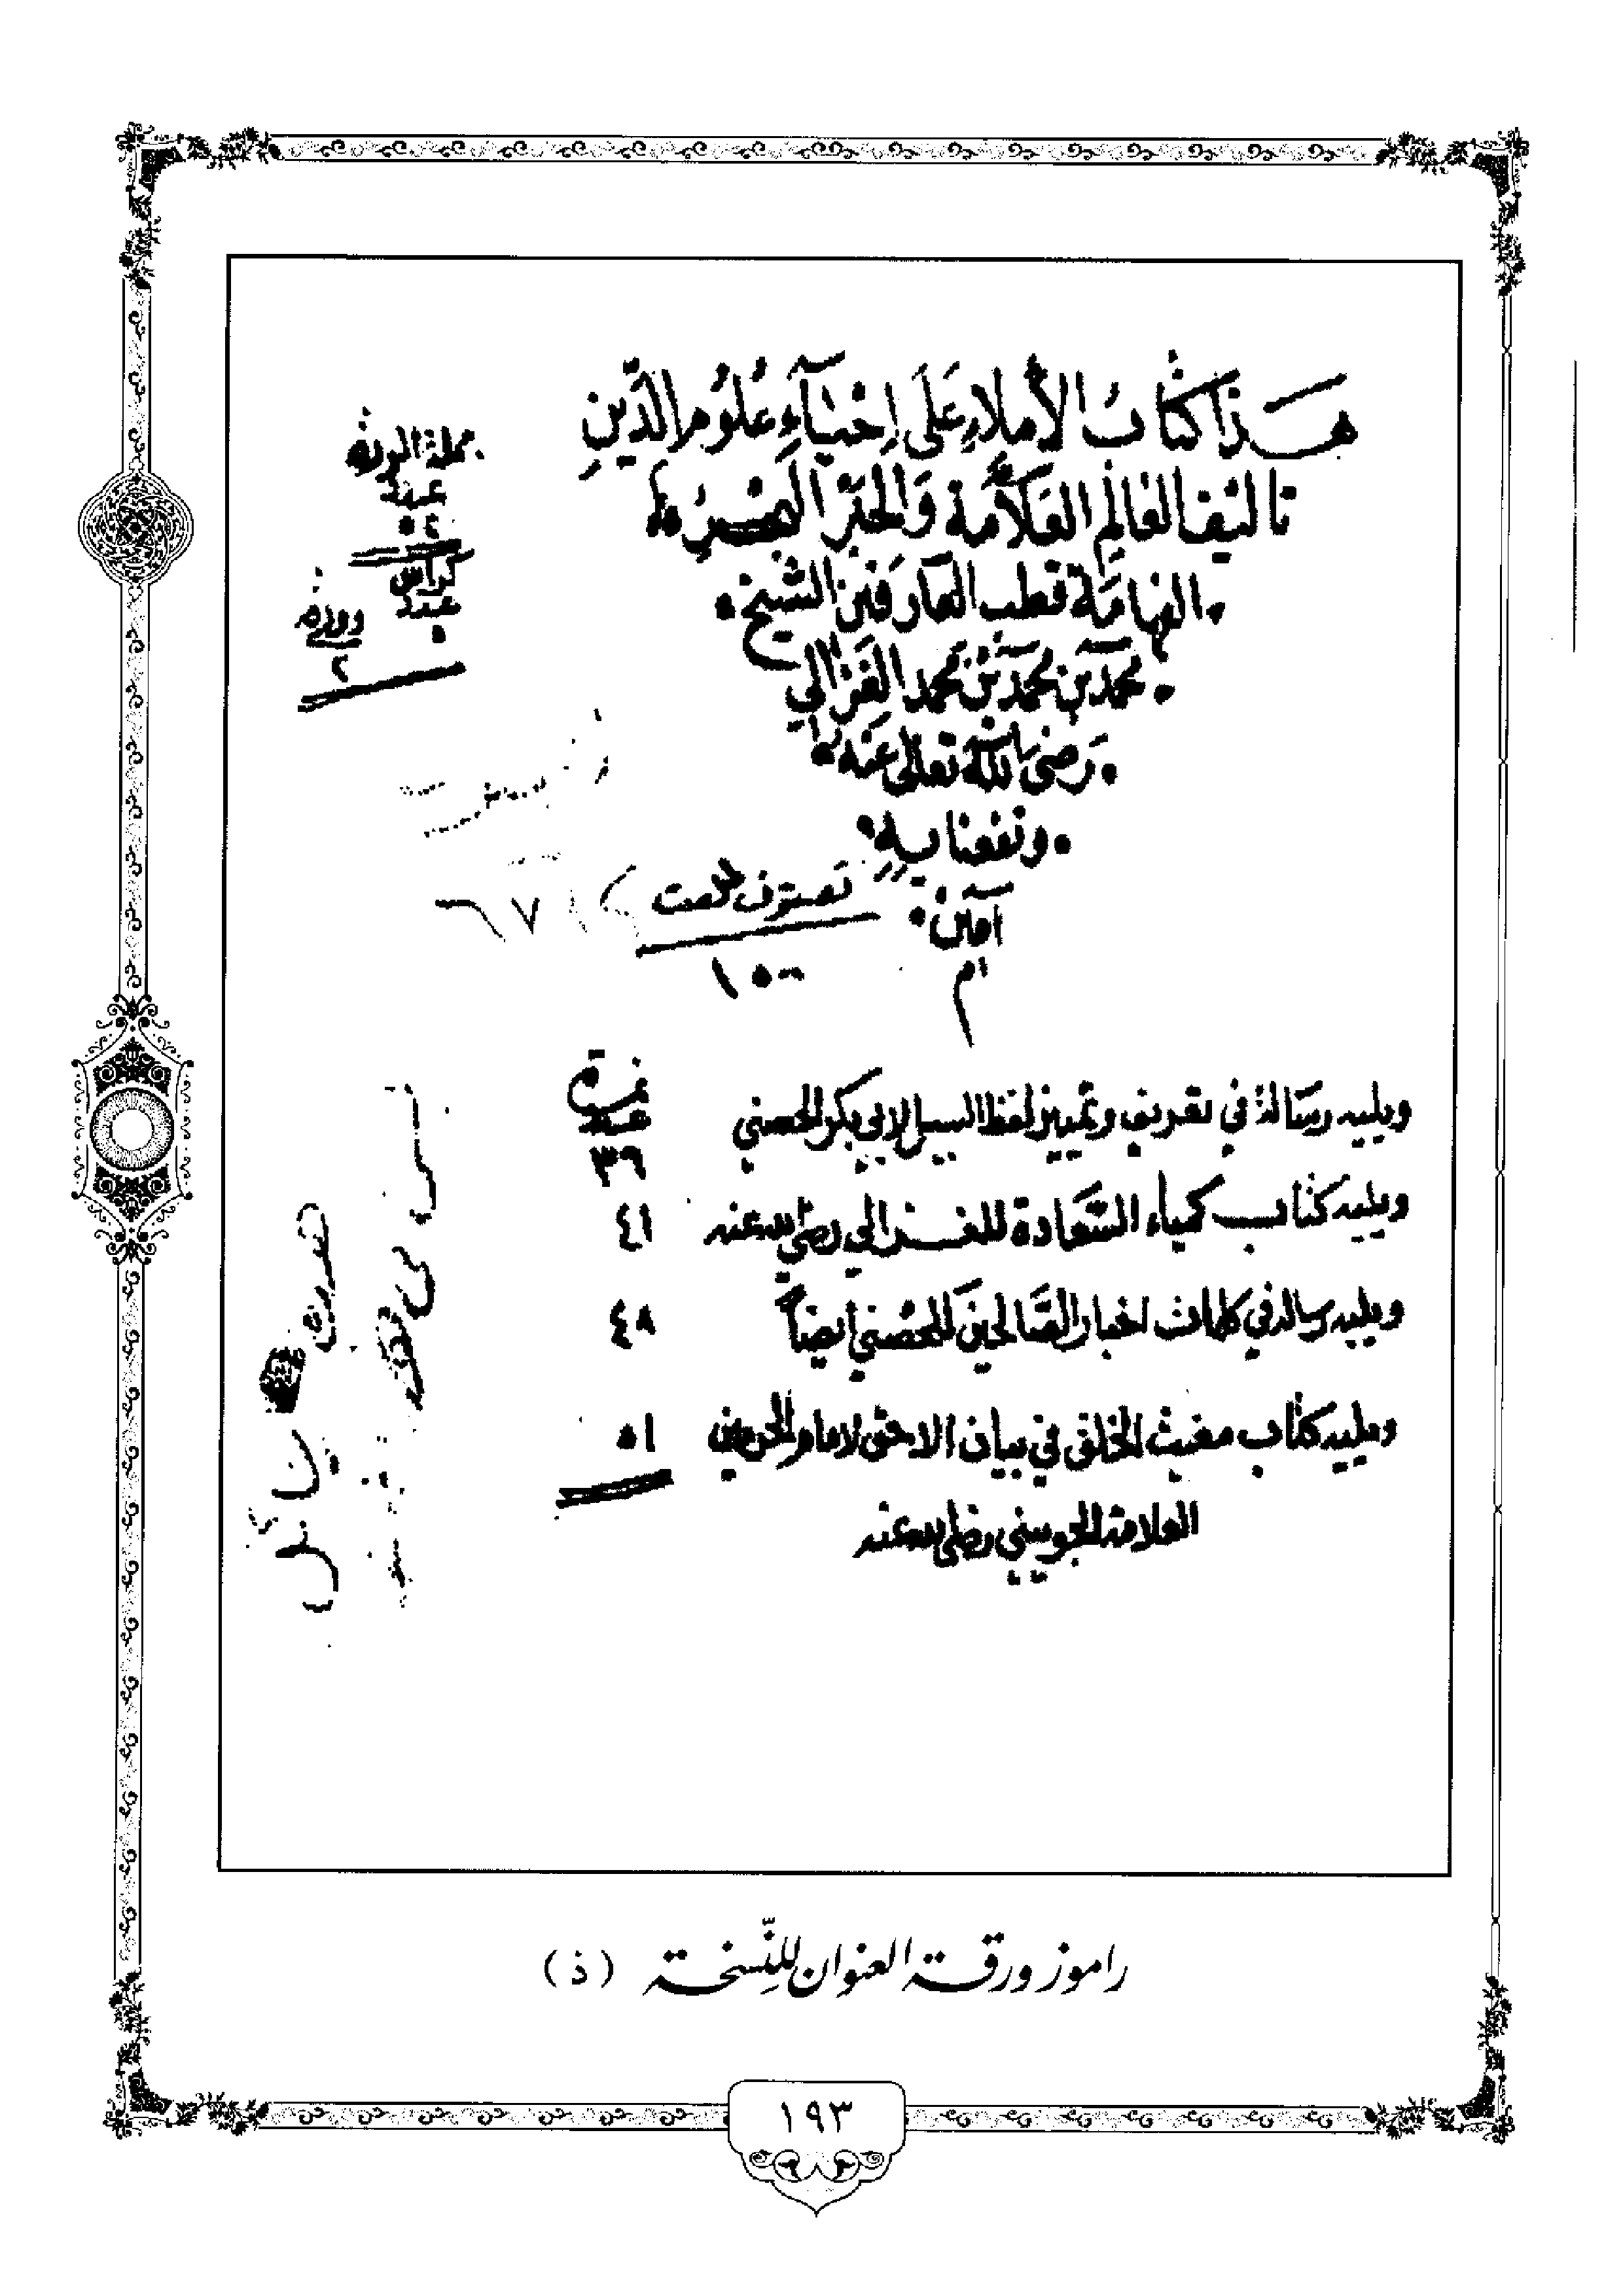 هذا كتاب الأملاء على إحياء علوم الدين
تاليف العالم العلامة والحبر البحر
الفهامة قطب العارفين الشيخ
محمد بن محمد بن محمد الغزالي
رضي الله تعالى عنه
ونفعنا به
آمين
م
جملة الورق
عدد
٥٤
كراس
عدد
٥
وورق
٢
تصوف طلعت
١٥٠٠
نمرة
عدد
ويليه رسالة في تعريف وتمييز لفظ السبيل لابي بكر الحصني ٣٩
ويليه كتاب كمياء السعادة للغزالي رضي الله عنه ٤١
ويليه رساله في كلمات اخبار الصالحين للحصني أيضاً ٤٨
ويليه كتاب مغيث الخلق في بيان الاحق لامام الحرمين ٥١
العلامة الجويني رضي الله عنه
راموز ورقة العنوان للنّسخة (ذ)
١٩٣